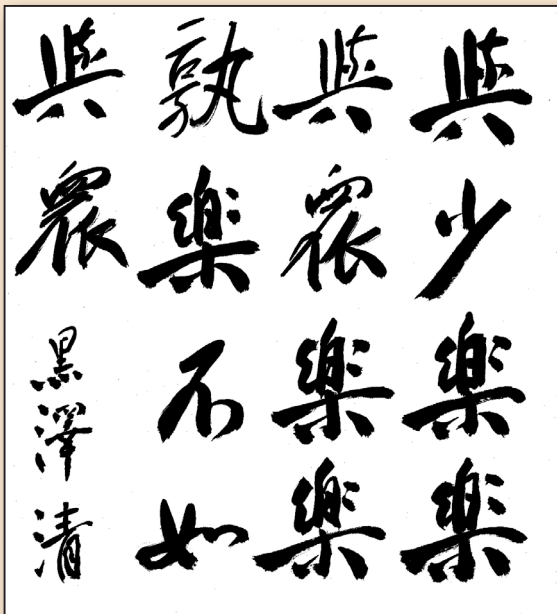 與少樂樂
與眾樂樂
孰樂不如
與眾
黑澤清